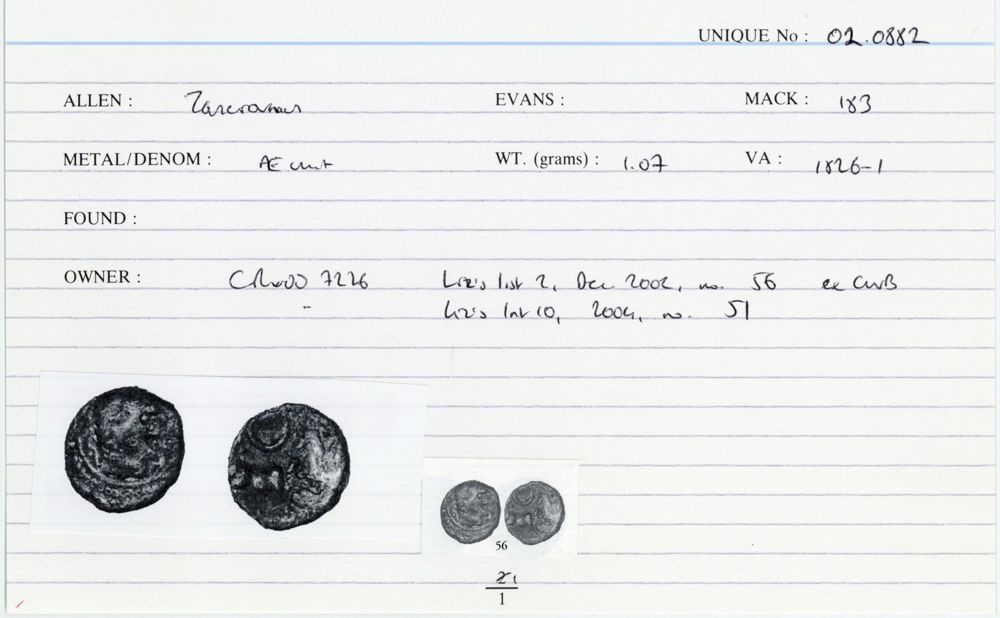 UNIQUE No : 02.0882
ALLEN : Tasciovanus EVANS : MACK : 183
METAL/DENOM : Æ unit WT. (grams) : 1.07 VA : 1826-1
FOUND :
OWNER : CR 7226 Liz's list 2, Dec 2002, no. 56 ex
" Liz's list 10, 2004, no. 51
56
1
1